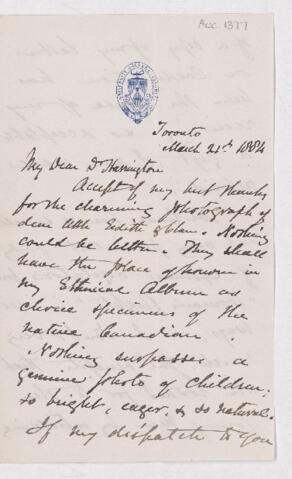 Acc. 1377
Toronto
March 21st 1884
My Dear Dr Harrington
Accept of my best thanks
for the charming photograph of
dear little Edith & Clare. Nothing
could be better. They shall
have the place of honour in
my Ethnical Album as
choice specimens of the
native Canadian.
Nothing surpasses a
genuine photo of children;
so bright, eager, & so natural.
If my dispatch to you